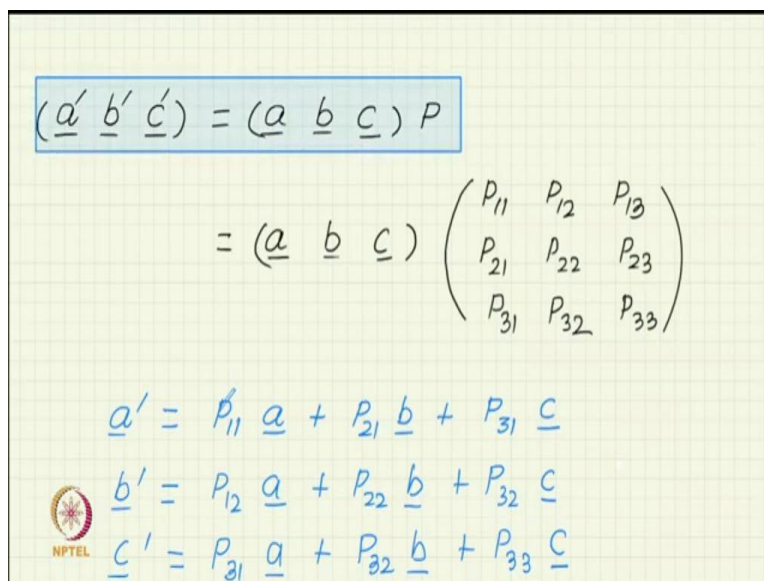 (a′ b′ c′) = (a b c) P
= (a b c) (P11 P12 P13
P21 P22 P23
P31 P32 P33)
a′ = P11 a + P21 b + P31 c
b′ = P12 a + P22 b + P32 c
c′ = P31 a + P32 b + P33 c
NPTEL